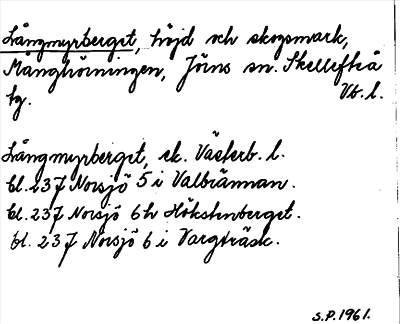 Långmyrberget, höjd och skogsmark,
Månghörningen, Jörns sn. Skellefteå
tg. Vb. l.
Långmyrberget, ek. Västerb. l.
bl. 237 Norsjö 5 i Valbrännan.
bl. 237 Norsjö 6 h Hökstenberget.
bl. 237 Norsjö 6 i Vargträsk.
S.P. 1961.